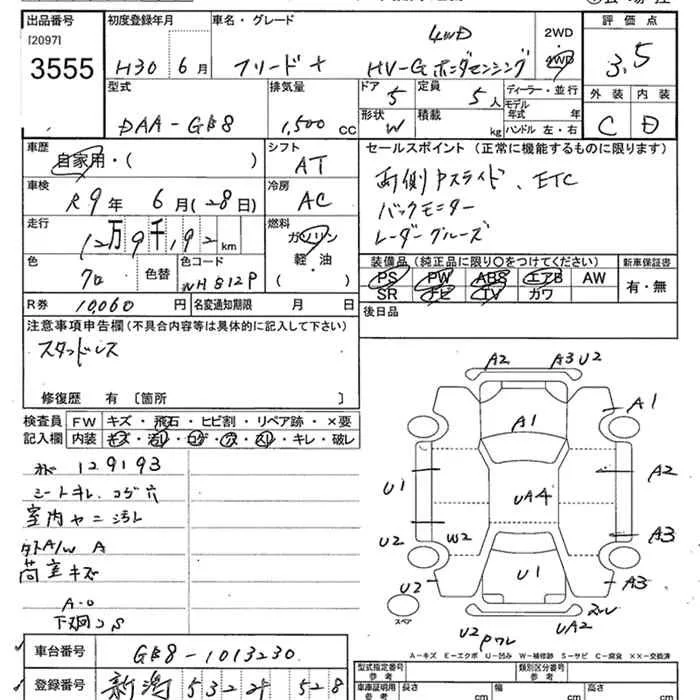 出品番号 初度登録年月 車名・グレード 2WD 評価点
[2097] 4WD
3555 H30 6月 フリード+ HV-G ホンダセンシング 4WD 3.5
型式 排気量 ドア 定員 ディーラー・並行 外装 内装
DAA-GB8 1,500 cc 5 5人 モデル年式 年
形状 積載 ハンドル 左・右 C D
W kg
車歴 シフト セールスポイント(正常に機能するものに限ります)
自家用・( ) AT
車検 冷房 両側Pスライド、ETC
R9年 6月(28日) AC バックモニター
走行 燃料 レーダークルーズ
12万9千192km ガソリン
軽・油
( )
色 色替 色コード 装備品(純正品に限り○をつけてください) 新車保証書
クロ NH812P PS PW ABS エアB AW 有・無
SR ナビ TV カワ
R券 10,060円 名変通知期限 月 日 後日品
注意事項申告欄(不具合内容等は具体的に記入して下さい)
スタッドレス
修復歴 有 [箇所 ]
検査員記入欄 FW キズ・飛石・ヒビ割・リペア跡・×要
内装 キズ・汚レ・コゲ・穴・スレ・キレ・破レ
129193
シートキレ、コゲ穴
室内ヤニ汚レ
タイヤA/W A
荷室キズ
A.O
下廻コS
A2 A3 U2
A1 A1
U1 UA4 A2
U2 W2 A3
U2 U1 A3
スペア
U2 Pワレ UA2
A-キズ E-エクボ U-凹み W-補修跡 S-サビ C-腐食 ××-交換済
車台番号 GB8-1013230
登録番号 新潟 532 528
型式指定番号 参考 類別区分番号 参考
車庫証明用 参考 長さ cm 幅 cm 高さ cm